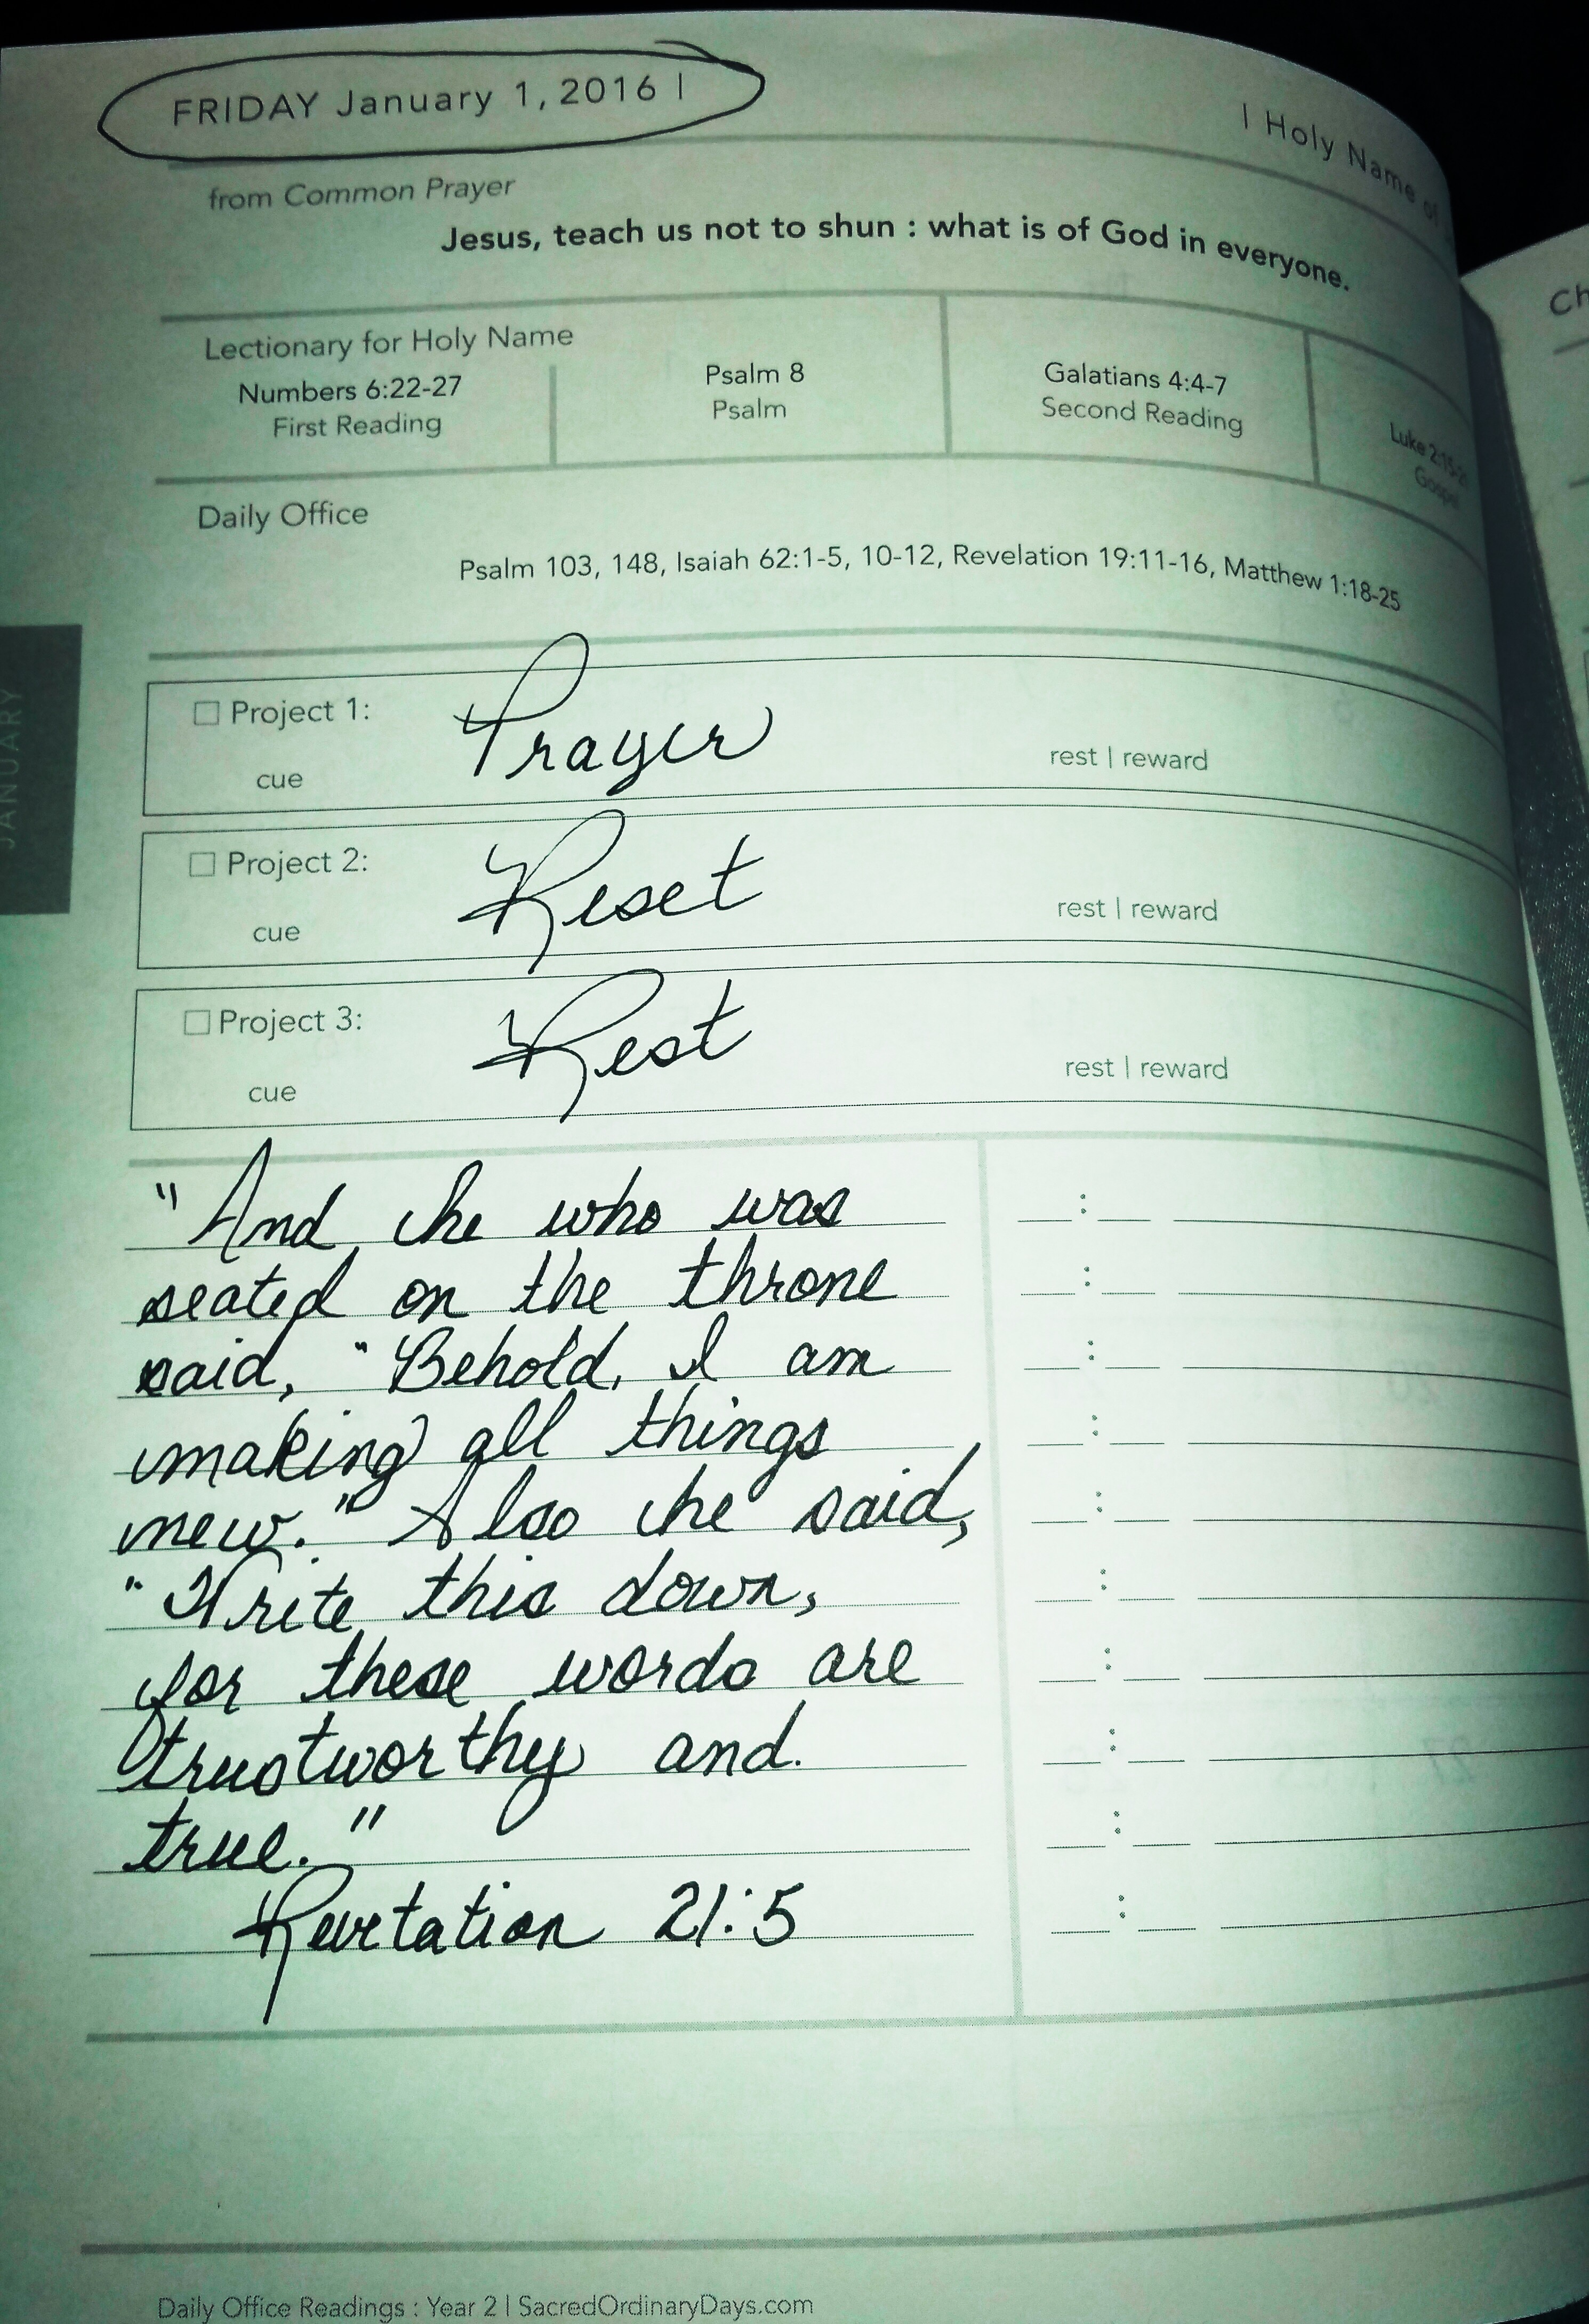 FRIDAY January 1, 2016 |
| Holy Name of
from Common Prayer
Jesus, teach us not to shun : what is of God in everyone.
Lectionary for Holy Name
Numbers 6:22-27
First Reading
Psalm 8
Psalm
Galatians 4:4-7
Second Reading
Luke 2:15-21
Gospel
Daily Office
Psalm 103, 148, Isaiah 62:1-5, 10-12, Revelation 19:11-16, Matthew 1:18-25
JANUARY
Project 1: Prayer
cue
rest | reward
Project 2: Reset
cue
rest | reward
Project 3: Rest
cue
rest | reward
"And he who was
seated on the throne
said, "Behold, I am
making all things
new." Also he said,
"Write this down,
for these words are
trustworthy and
true."
Revelation 21:5
Daily Office Readings : Year 2 | SacredOrdinaryDays.com